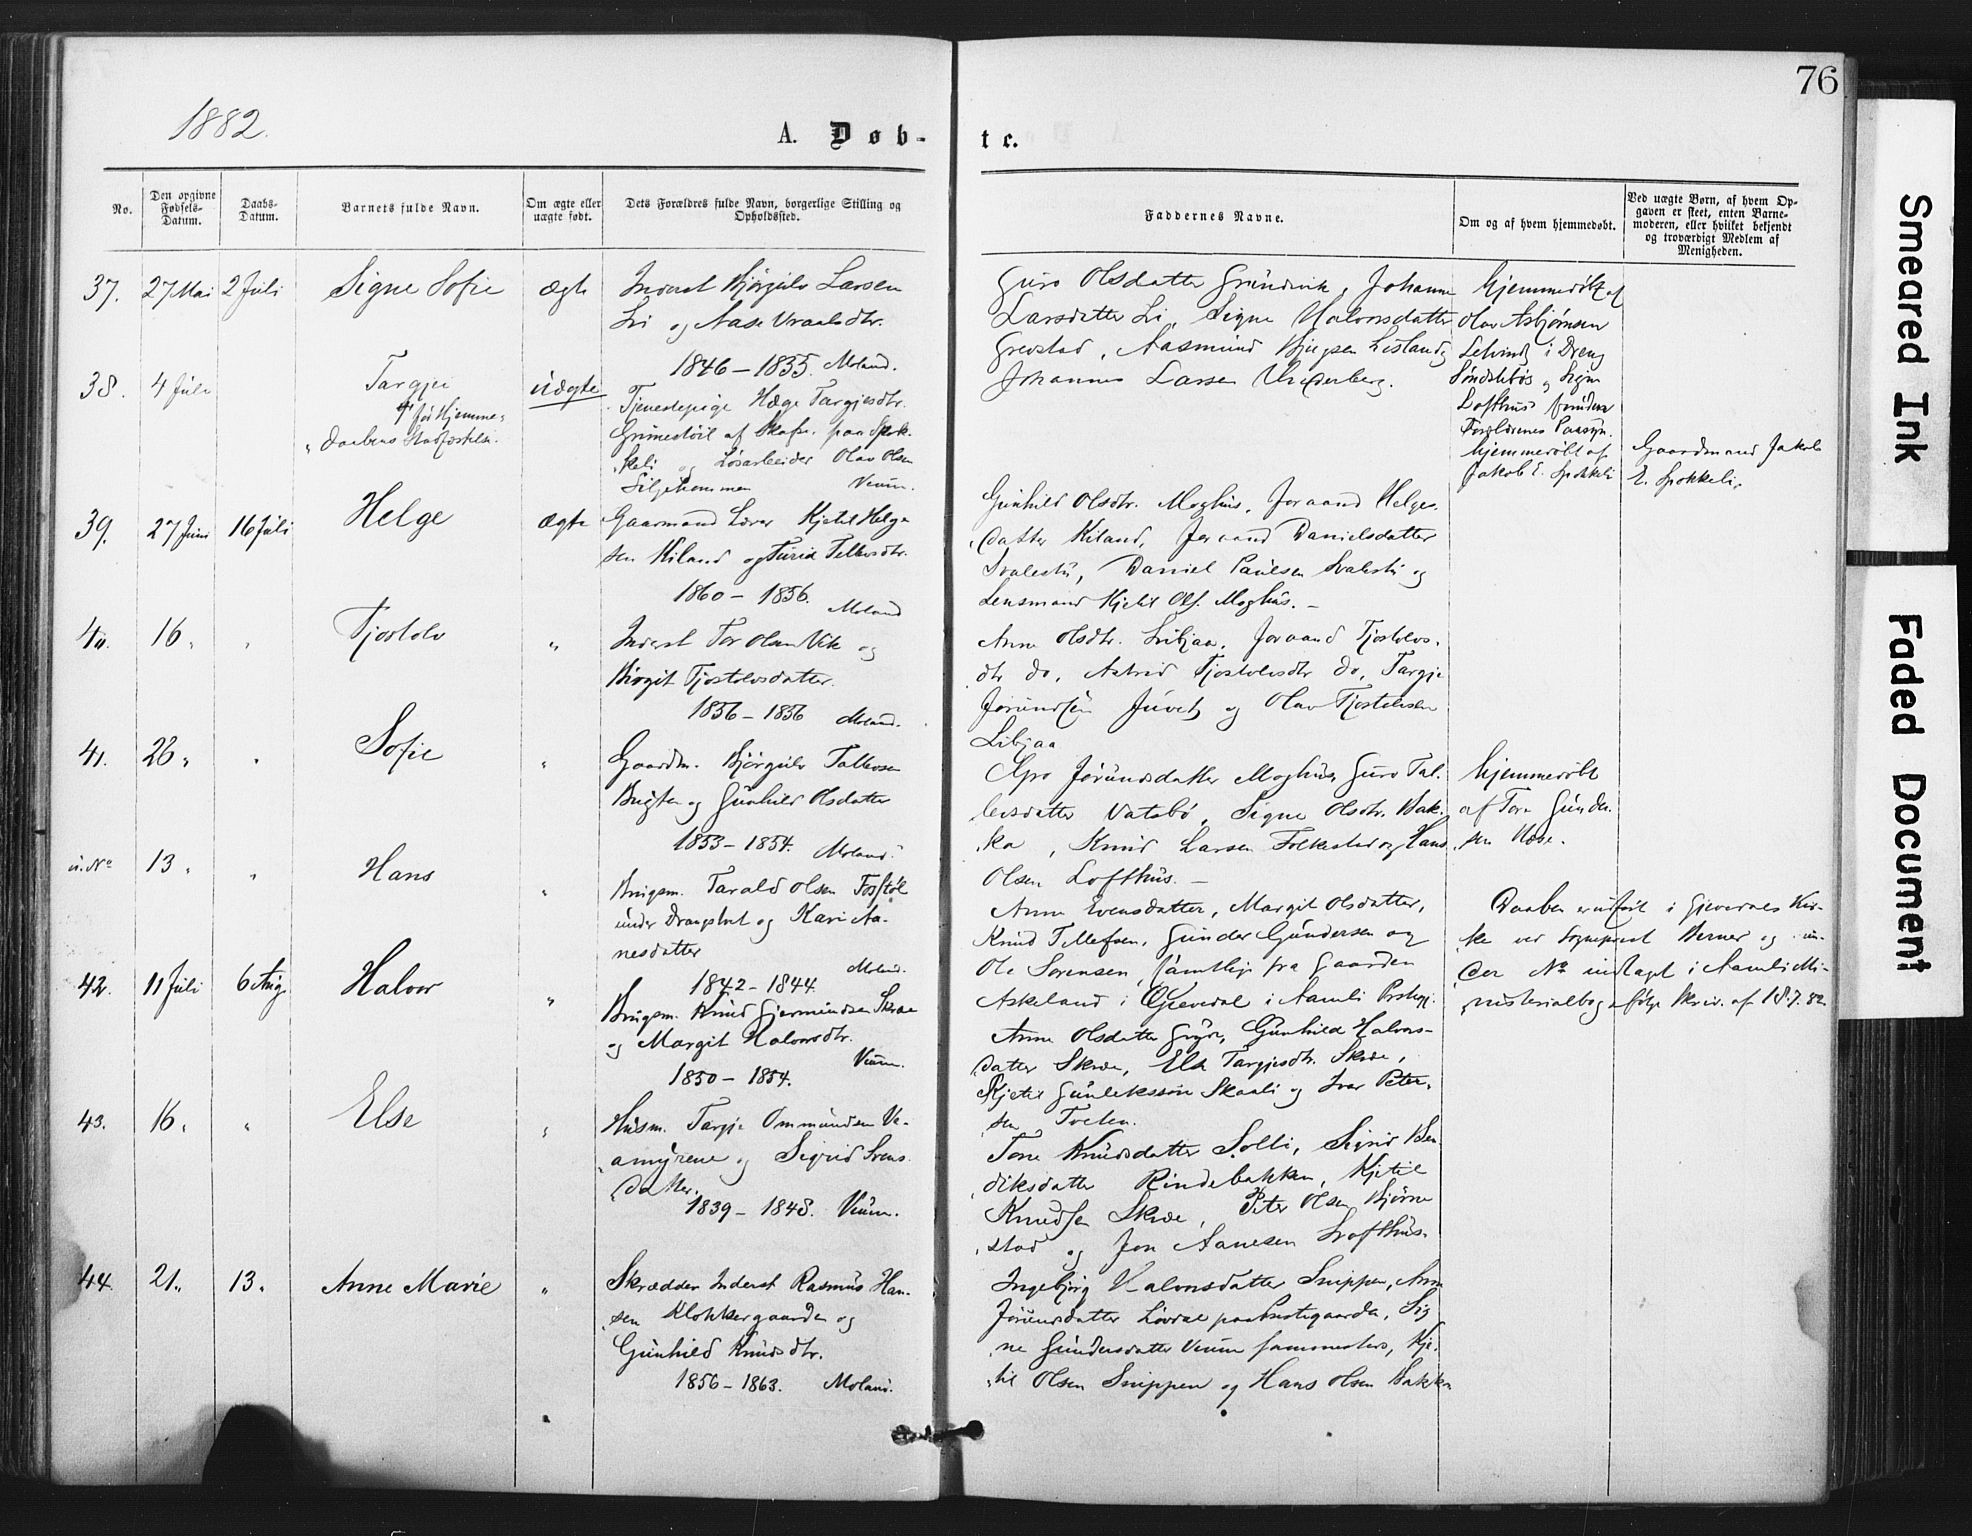 76
1882.
A. Døb-
te.
No.
Den opgivne Fødsels-Datum.
Daabs-Datum.
Barnets fulde Navn.
Om ægte eller uægte født.
Dets Forældres fulde Navn, borgerlige Stilling og Opholdssted.
Faddernes Navne.
Om og af hvem hjemmedøbt.
Ved uægte Børn, af hvem Op-
gaven er skeet, enten Barne-
moderen, eller hvilket bekjendt
og troværdigt Medlem af
Menigheden.
37. 27 Mai 2 Juli Signe Sofie ægte
Inderst Bjørgulv Larsen
Li og Aase Vraalsdtr.
1846 - 1855. Moland.
Guro Olsdatter Grundvik, Johanne
Larsdatter Li, Signe Halvorsdatter
Grevstad, Aasmund
Johannes Larsen
Hjemmedøbt af
Olav Asbjørnsen
i Dreng
og Signe
Lofthus
38. 4 Juli Targjei uægte
før Hjemme-
daabens Stadfæstelse.
Tjenestepige Hæge Targjesdtr.
Grimestøil af Skafse. paa Spok-
keli og Løsarbeider Olav Olsen
Veum.
hjemmedøbt af
Jakob E. Spokkeli
Gaardmand Jakob
E. Spokkeli.
39. 27 Juni 16 Juli Helge ægte
Gaarmand Lærer Kjetil Helge
sen Kiland og Turid Tellevsdtr.
1860 - 1856.
Moland
Gunhild Olsdtr. Moghus, Joraand Helges-
datter Kiland, Joraand Danielsdatter
Svalestu, Daniel Paulsen Svalestu og
Lensmand Kjetil Ols. Moghus. -
40. 16 " " Tjostolv "
Inderst Tor Olsen Vik og
Birgit Tjostolvsdatter.
1856 - 1856 Moland.
Anne Olsdtr. Libjaa, Joraand Tjostolvs-
dtr do, Astrid Tjostolvsdtr do, Targje
Jørundsen Juvet og Olav Tjostolvsen
Libjaa
41. 28 " " Sofie "
Gaardm. Bjørgulv Tallevsen
og Gunhild Olsdatter
1853 - 1854. Moland.
Jørundsdatter Moghus, Guro Tal-
levsdatter Vatsbø, Signe Olsdtr. Bak-
ka, Knud Larsen Folkestad og Hans
Olsen Lofthus. -
hjemmedøbt
af Tore Gunder-
sen
u. No 13 " " Hans "
Brugsm. Tarald Olsen
under og Kari Aa-
nesdatter
1842 - 1844
Moland.
Anne Evensdatter, Margit Olsdatter,
Knud Tellefsen, Gunder Gundersen og
Ole Sørensen, samtlige fra Gaarden
Askeland i Gjevedal i Aamli Prstgj.
Daaben er udført i Gjevedals Kir-
ke ved Sogneprest Berner og un-
der No indtaget i Aamli Mi-
nisterialbog ifølge Skriv. af 18.7.82
42. 11 Juli 6 Aug. Halvor "
Brugsm. Knud Gjermundsen Skree
og Margit Halvorsdtr.
1850 - 1854. Veum.
Anne Olsdatter, Gunhild Halvors-
datter Skree, Else Targjesdtr. Skree,
Kjetil Gunleiksson Skaali og Ivar Peter-
sen Tveten.
43. 16 " " Else "
Husm. Targje Ommundsen Ve-
amyrene og Sigrid Svens-
datter.
1839 - 1848. Veum.
Tone Knudsdatter Solli, Sigrid Ben-
diksdatter Rindebakken, Kjetil
Knudsen Skree, Peter Olsen Bjørne-
stad og Jon Aanesen
44. 21 " 13 " Anne Marie "
Skrædder Inderst Rasmus Han-
sen Klokkergaarden og
Gunhild Knudsdtr.
1856 - 1863. Moland.
Ingebjørg Halvorsdatter Snippen, Anne
Jørundsdatter Løvdal paa Prestegaarden, Sig-
ne Gundersdatter Veum sammesteds, Kje-
til Olsen Snippen og Hans Olsen Bakka
Smeared Ink
Faded Document